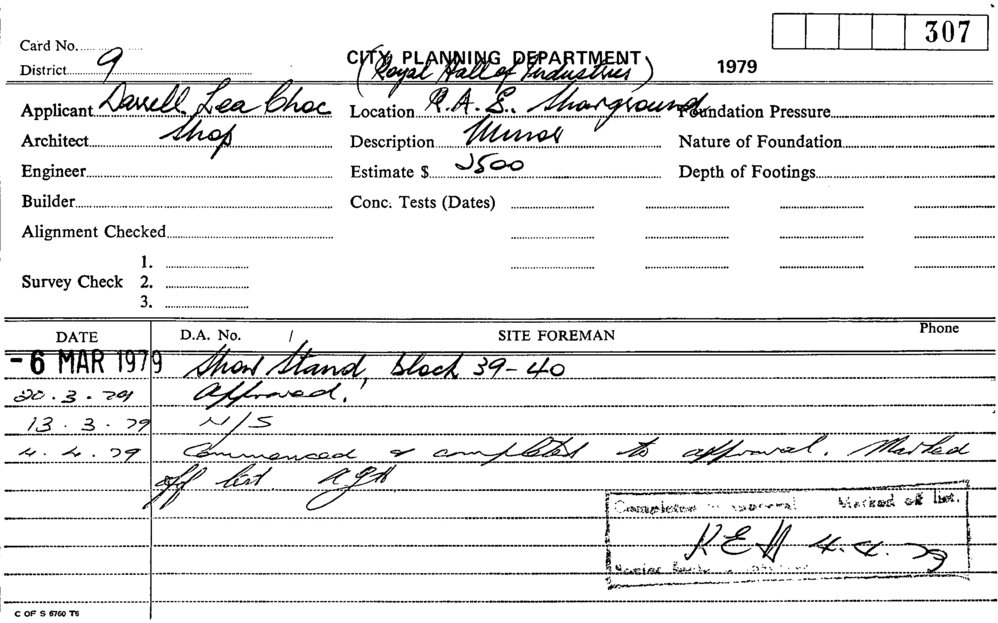 307
Card No.
CITY PLANNING DEPARTMENT
(Royal Hall of Industries)
1979
District 9
Applicant Darrell Lea Choc
Location R.A.S. Showground
Foundation Pressure
Architect Shop
Description Minor
Nature of Foundation
Engineer
Estimate $ 2500
Depth of Footings
Builder
Conc. Tests (Dates)
Alignment Checked
Survey Check 1.
2.
3.
DATE D.A. No. / SITE FOREMAN Phone
-6 MAR 1979 Show Stand, block 39-40
20.3.79 Approved.
13.3.79 N/S
4.4.79 Commenced & completed to approval. Marked
off list
Completed to approval Marked off list.
KEH 4.4.79
C OF S 6760 T6